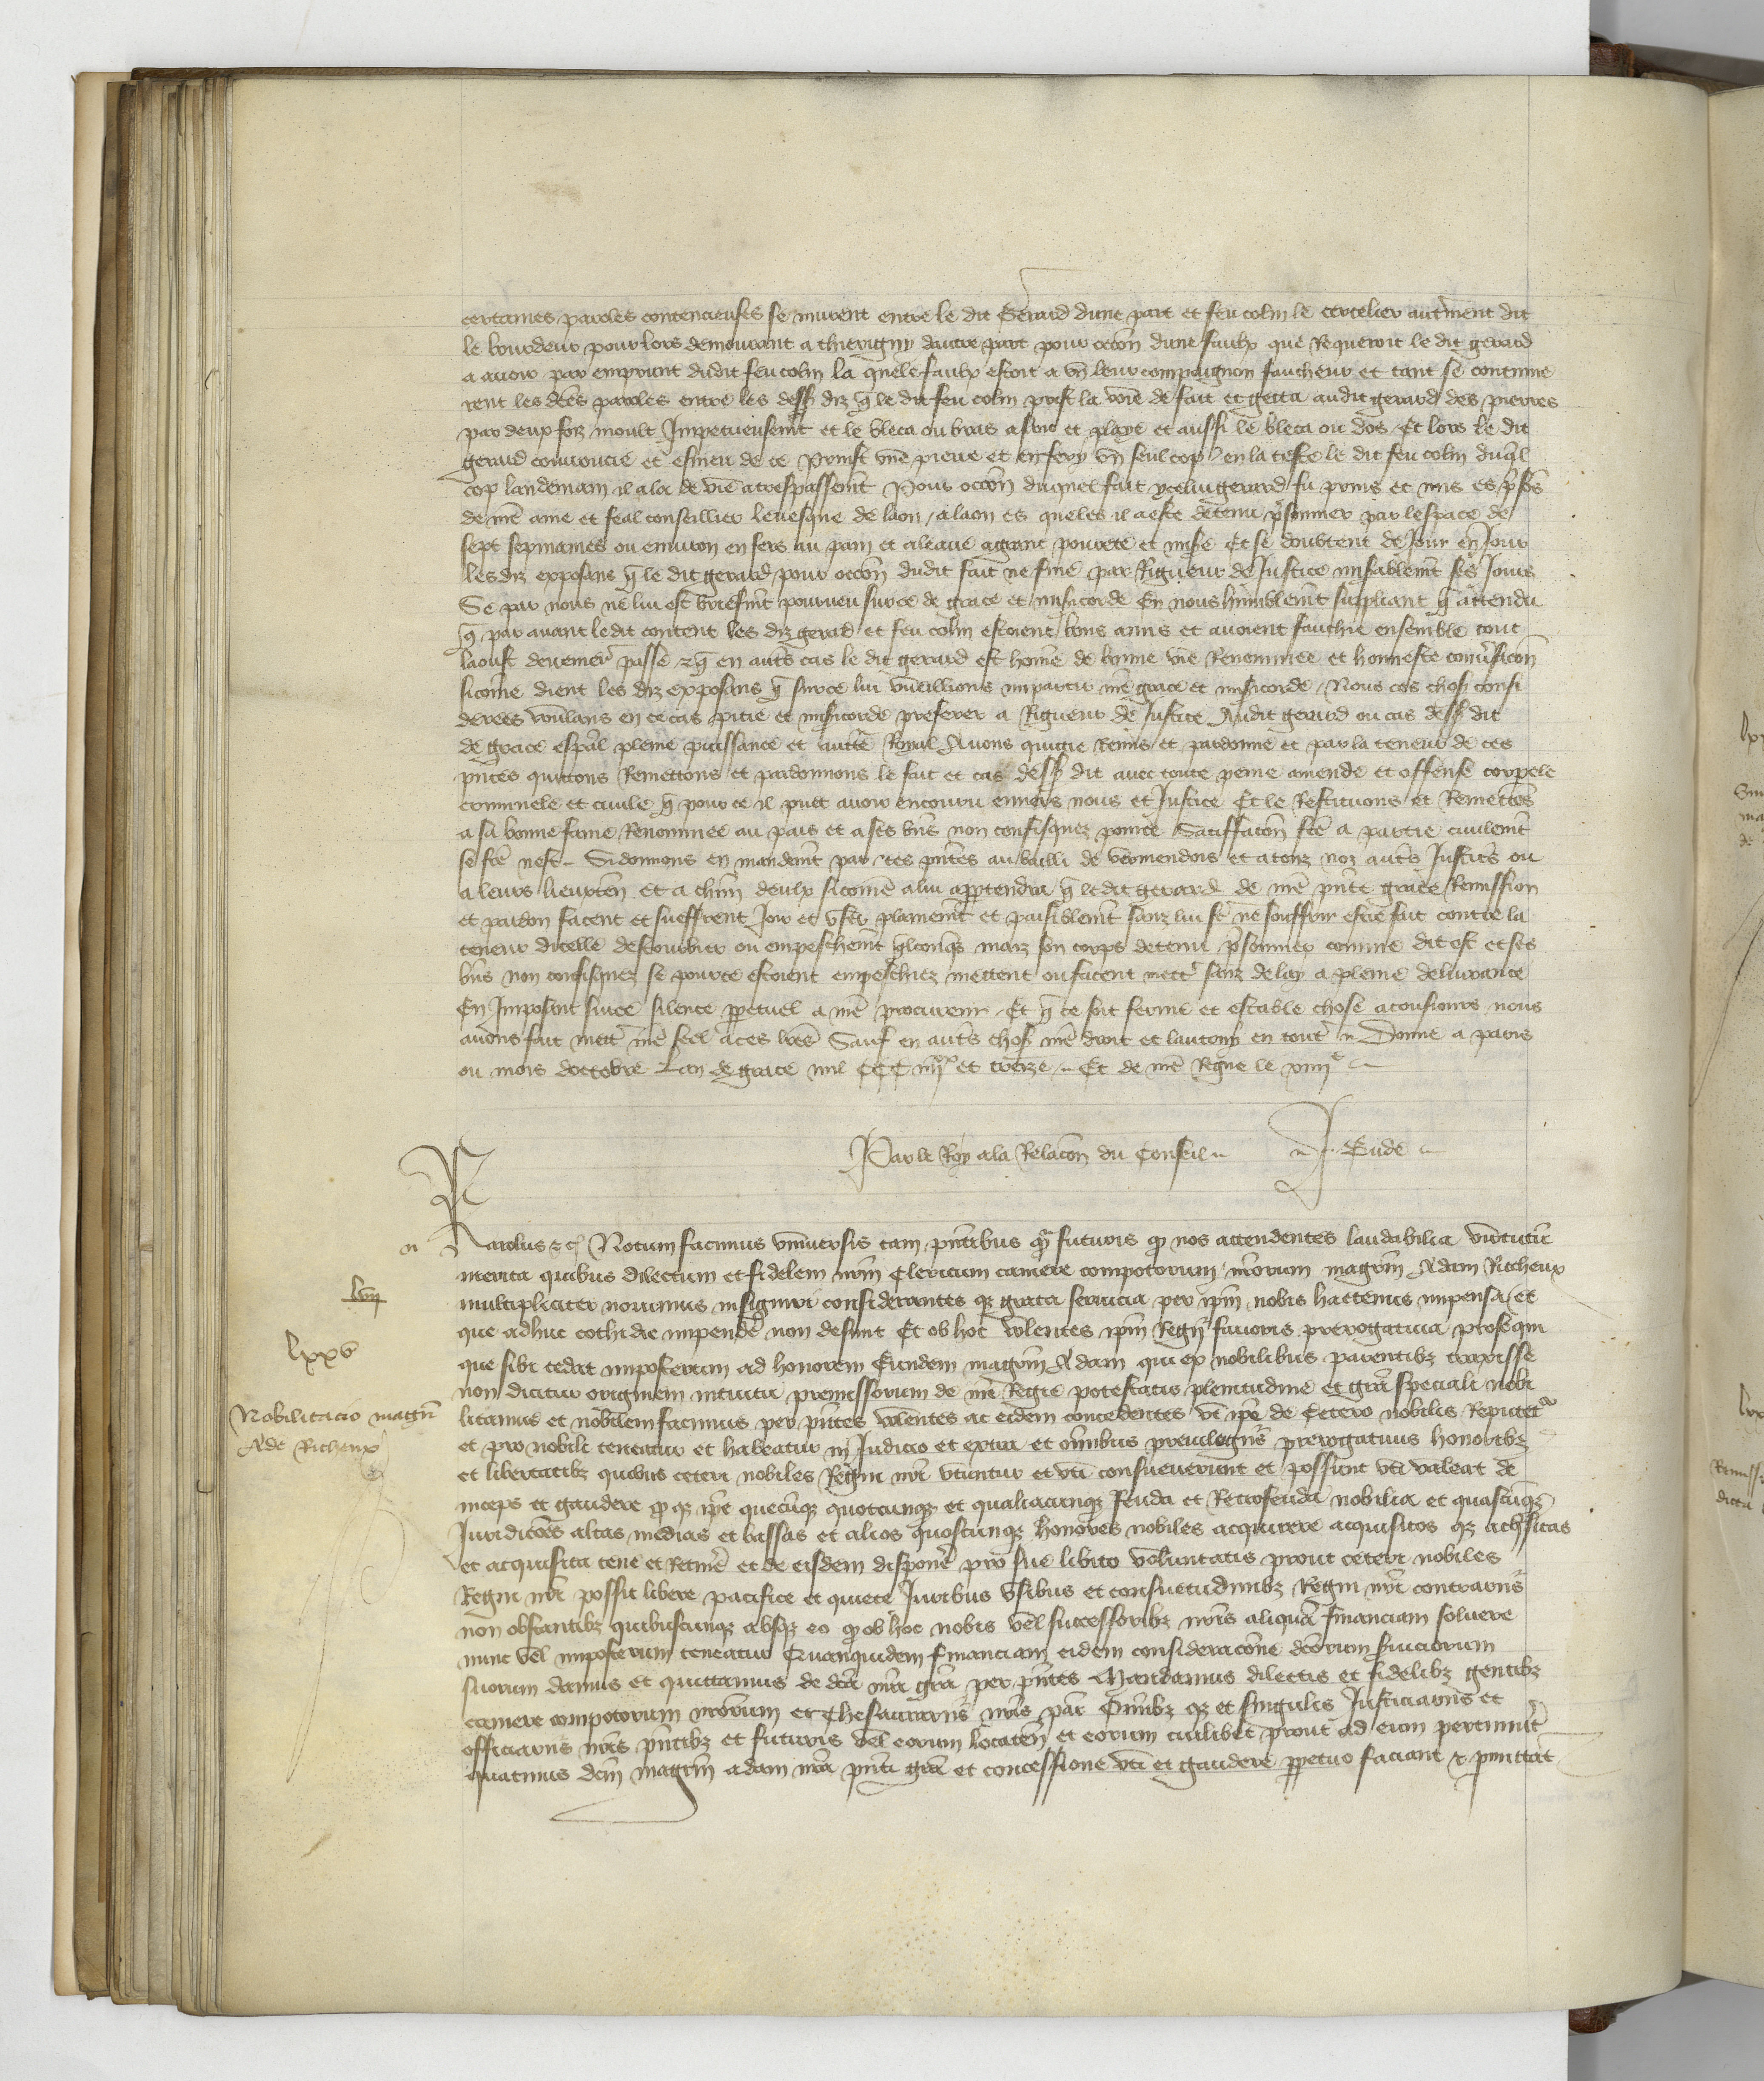 certaines paroles contencieuses se murent entre le dit Gerard dune part et feu colin le cercelier autrement dit
le bourdeur pour lors demourant a thierigny dautre part pour occon dune faulx que Requeroit le dit gerard
a avoir par emprunt dudit feu colin la quele faulx estoit a un leur compaignon faucheur et tant se continue
rent les dces paroles entre les dess diz q le dit feu colin prist la voie de fait et getta audit gerard des pierres
par deux foiz moult Impetueusemt et le bleca ou bras a sanc et playe et aussi le bleca ou dos Et lors le dit
gerard courroucie et esmeu de ce Prinst une pierre et en fery un seul cop en la teste le dit feu colin duql
cop landemain il ala de vie a trespassemt Pour occon duquel fait ycelui gerard fu prins et mis es psons
de nre ame et feal conseillier levesque de laon / a laon es queles il a este detenu psonnier par lespace de
sept sepmaines ou environ en fers au pain et a leaue a grant povrete et mise Et se doubtent de Jour en Jour
les diz exposans q le dit gerard pour occon dudit fait ne fine par Rigueur de Justice misablemt ses Jours
Se par nous ne lui est briefmt pourveu sur ce de grace et misicorde En nous humblemt suppliant q attendu
q par avant le dit content les diz gerard et feu colin estoient bons amis et avoient fauchie ensemble tout
laoust derreneir passe et q en auts cas le dit gerard est home de bonne vie Renommee et honneste conversacon
sicome dient les diz exposans q sur ce lui vueillions impartir nre grace et misicorde / Nous ces chos consi
derees voulans en ce cas pitie et misicorde preferer a Rigueur de Justice Audit gerard ou cas dess dit
de grace espal pleine puissance et aucte Royal Avons quictie remis et pardonne et par la teneur de ces
pntes quictons Remettons et pardonnons le fait et cas dess dit avec toute peine amende et offense corpele
criminele et civile q pour ce il puet avoir encouru envers nous et Justice Et le Restituons et Remettons
a sa bonne fame Renommee au pais et a ses bns non confisquez pourvu Satisfacon fce a partie civilemt
se fce nest - Si donnons en mandemt par ces pntes au bailli de vermendois et a touz noz auts Justics ou
a leurs lieuxten et a chun deulx sicome a lui appartendra q le dit gerard de nre pnte grace Remission
et pardon facent et sueffrent Joir et user plainemt et paisiblemt sanz lui fe ne souffrir estre fait contre la
teneur dicelle destourbier ou empeschemt qlconqs maiz son corps detenu psonnier comme dit est et ses
bns non confisquez se pour ce estoient empeschiez mettent ou facent mettr sanz delay a pleine delivrance
En Imposant sur ce silence ppetuel a nre procureur Et q ce soit ferme et estable chose a tousiours nous
avons fait mettr nre seel a ces lres Sauf en auts chos nre droit et lautruy en tout Donne a paris
ou mois doctobre Lan de grace mil CCC iiijxx et treize Et de nre Regne le xiiije
Par le Roy a la Relacon du Conseil J. Bude
Karolus etc Notum facimus universis tam pntibus q futuris q nos attendentes laudabilia virtutum
merita quibus dilectum et fidelem nrm Clericum camere compotorum nrorum magrm Adam Richeux
multipliciter novimus insigniri considerantes q grata servicia per ipm nobis hactenus impensa et
que adhuc cothidie impende non desinit Et ob hoc volentes ipm Regii favoris prerogativa prosequi
que sibi cedat imposterum ad honorem Eundem magrm Adam qui ex nobilibus parentibz traxisse
non dicitur originem intuitu premissorum de nre Regie potestatis plenitudine et gra speciali nobi
litamus et nobilem facimus per pntes volentes ac eidem concedentes ut ipe de Cetero nobilis Reputetr
et pro nobili teneatur et habeatur in Judicio et extra et omnibus previlegiis prerogativis honoribz
et libertatibz quibus ceteri nobiles Regni nri utuntur et uti consueverunt et possunt uti valeat de
inceps et gaudere q q ipe quecuqz quotcunqz et qualiacunqz feuda et Retrofeuda nobilia et quascuqz
Juridicoes altas medias et bassas et alios quoscunqz honores nobiles acquirere acquisitos qz acqsitas
et acquisita tene et Retine et de eisdem dispone pro sue libito voluntatis prout ceteri nobiles
Regni nri possit libere pacifice et quiete Juribus usibus et consuetudinibz Regni nri contrariis
non obstantibz quibuscunqz absqz eo q ob hoc nobis vel successoribz nris aliqua financiam solvere
nunc vel imposterum teneatur Quamquidem financiam eidem consideracone dcorum sviciorum
suorum damus et quittamus de dca nra gra per pntes Mandamus dilectis et fidelibz gentibz
camere compotorum nrorum et Thesaurariis nris par Omibz qz et singulis Justiciariis et
officiariis nris pntibz et futuris vel eorum locaten et eorum cuilibet prout ad eum pertinuit
quatinus dcm magrm adam nra pnti gra et concessione uti et gaudere ppetuo faciant et pmittat
lvij
lxxv
Nobilitacio magri
Ade Richeux